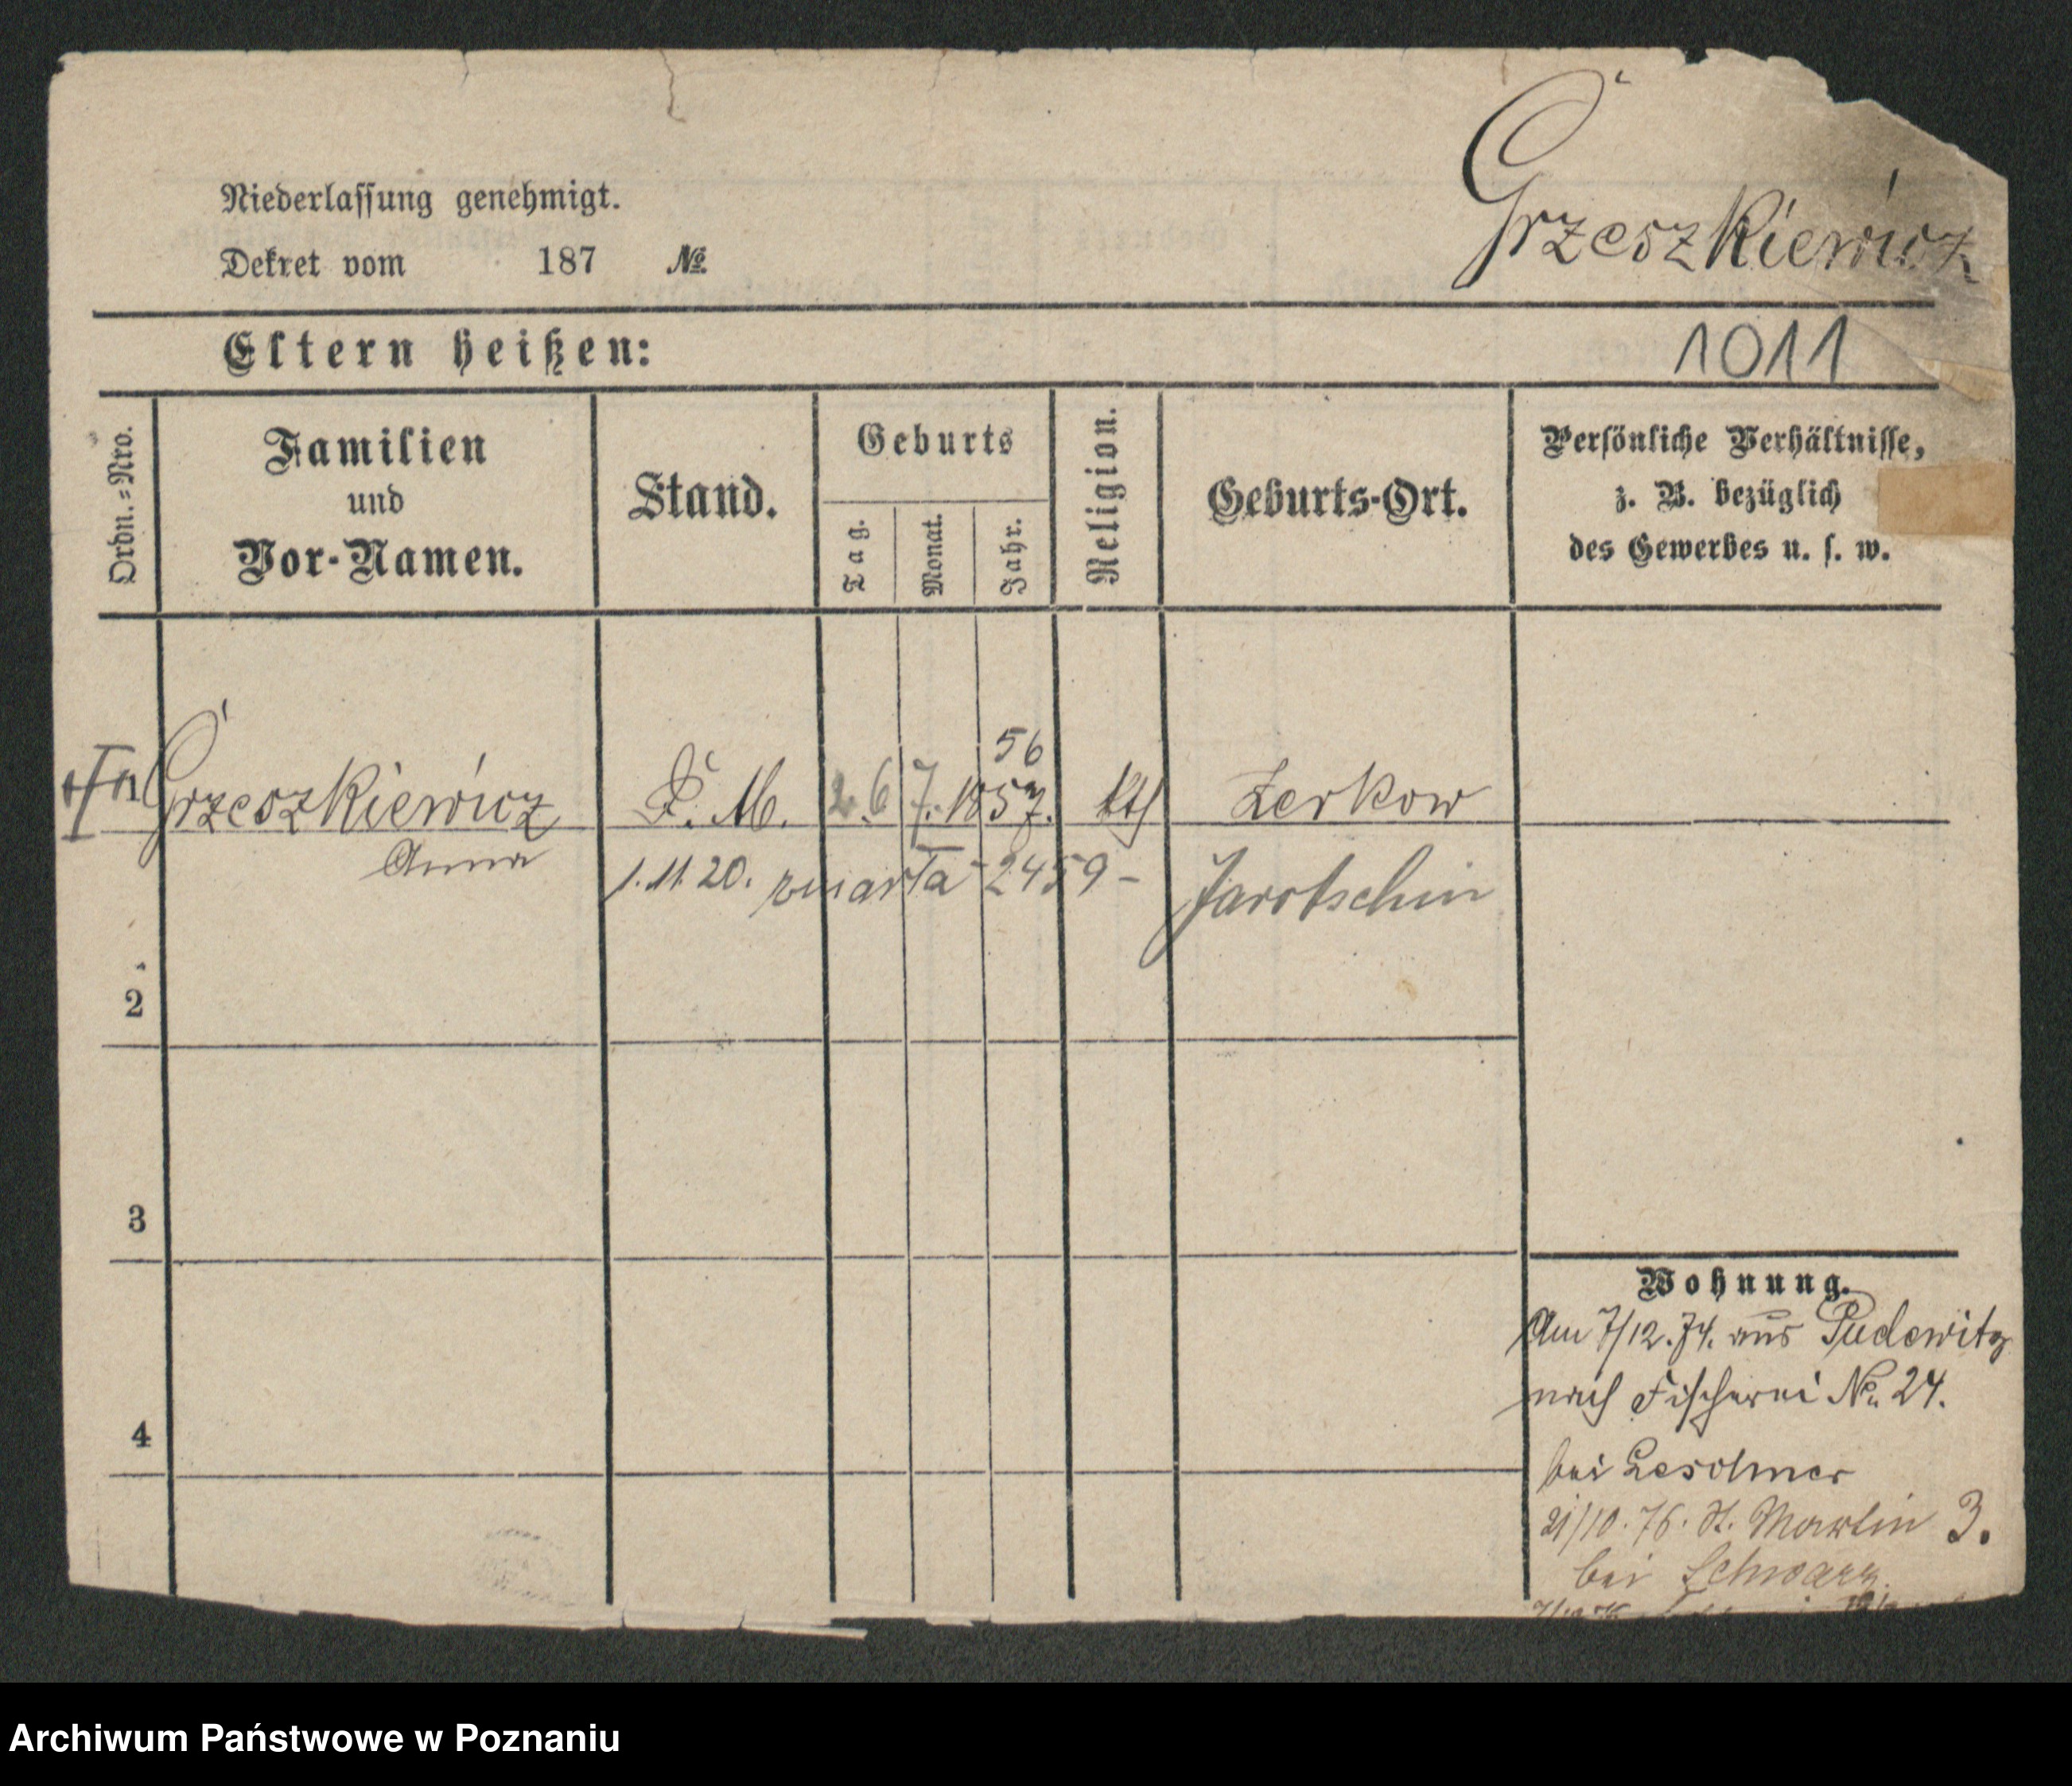 Grzeszkiewicz
Niederlassung genehmigt.
Dekret vom 187 №
Eltern heißen:
1011
Ordn.=Nro.
Familien
und
Vor-Namen.
Stand.
Geburts
Tag.
Monat.
Jahr.
Religion.
Geburts-Ort.
Persönliche Verhältnisse,
z. B. bezüglich
des Gewerbes u. s. w.
56
1 Grzeszkiewicz D. M. 26 7. 1857. kth Zerkow
Anna
1.11.20. zmarła - 2459 - Jarotschin
2
3
4
Wohnung.
Am 7/12.74. aus Pudewitz
nach Fischerei No 24.
bei
21/10.76. St. Martin 3.
bei Schwarz.